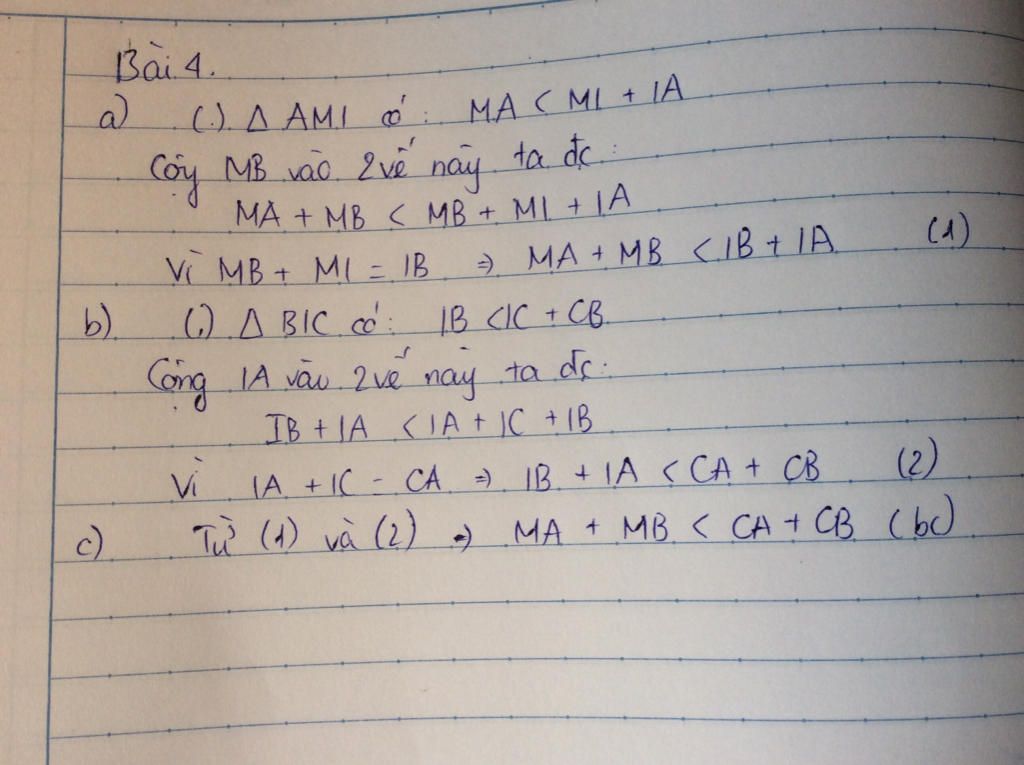 Bài 4.
a) (.) Δ AMI có: MA < MI + IA
Cộg MB vào 2 vế này ta đc:
MA + MB < MB + MI + IA
Vì MB + MI = IB ⇒ MA + MB < IB + IA (1)
b) (.) Δ BIC có: IB < IC + CB
Cộng IA vào 2 vế này ta đc:
IB + IA < IA + IC + IB
Vì IA + IC = CA ⇒ IB + IA < CA + CB (2)
c) Từ (1) và (2) ⇒ MA + MB < CA + CB (bc)